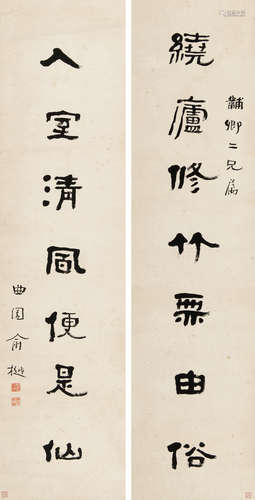 黼卿二兄屬
繞廬修竹無由俗
入室清風便是仙
曲園俞樾